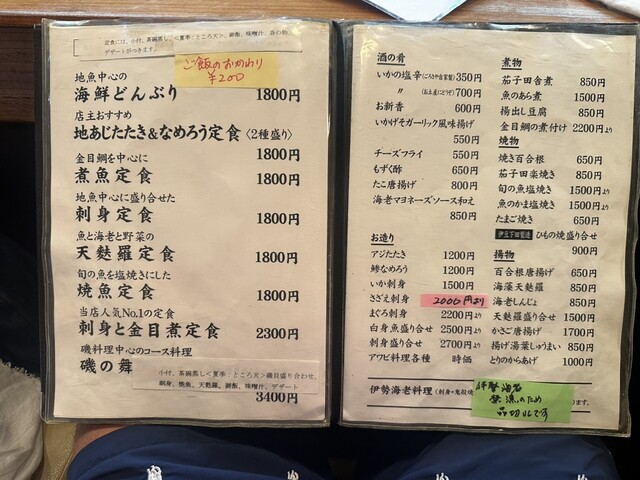 定食には、小付、茶碗蒸し<夏季:ところ天>、御飯、味噌汁、香の物、
デザートがつきます。
ご飯のおかわり
¥200
地魚中心の
海鮮どんぶり 1800円
店主おすすめ
地あじたたき&なめろう定食〈2種盛り〉
1800円
金目鯛を中心に
煮魚定食 1800円
地魚中心に盛り合せた
刺身定食 1800円
魚と海老と野菜の
天麩羅定食 1800円
旬の魚を塩焼きにした
焼魚定食 1800円
当店人気No.1の定食
刺身と金目煮定食 2300円
磯料理中心のコース料理
磯の舞
小付、茶碗蒸し<夏季:ところ天>磯貝盛り合わせ、
刺身、焼魚、天麩羅、御飯、味噌汁、デザート
3400円
酒の肴
いかの塩辛(ごろさや自家製) 350円
〃 (お土産にどうぞ) 700円
お新香 600円
いかげそガーリック風味揚げ
550円
チーズフライ 550円
もずく酢 650円
たこ唐揚げ 800円
海老マヨネーズソース和え
850円
お造り
アジたたき 1200円
鯵なめろう 1200円
いか刺身 1500円
さざえ刺身 2000円より
まぐろ刺身 2200円より
白身魚盛り合せ 2500円より
刺身盛り合せ 2700円より
アワビ料理各種 時価
煮物
茄子田舎煮 850円
魚のあら煮 1500円
揚出し豆腐 850円
金目鯛の煮付け 2200円より
焼物
焼き百合根 650円
茄子田楽焼き 850円
旬の魚塩焼き 1500円より
魚のかま塩焼き 1500円より
たまご焼き 650円
伊豆下田製造 ひもの焼盛り合せ
900円
揚物
百合根唐揚げ 650円
海藻天麩羅 850円
海老しんじょ 850円
天麩羅盛り合せ 1500円
かさご唐揚げ 1700円
揚げ湯葉しゅうまい 850円
とりのからあげ 1000円
伊勢海老料理(刺身・鬼殻焼
ます。
伊勢海老
禁漁のため
品切れです